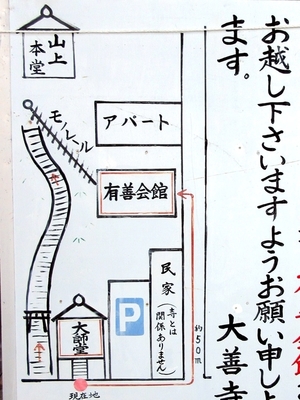 お越し下さいますようお願い申し
ます。
大善寺
山上
本堂
モノレール
アパート
有善会館
民家
(寺とは
関係ありません)
P
大師堂
約50m
現在地